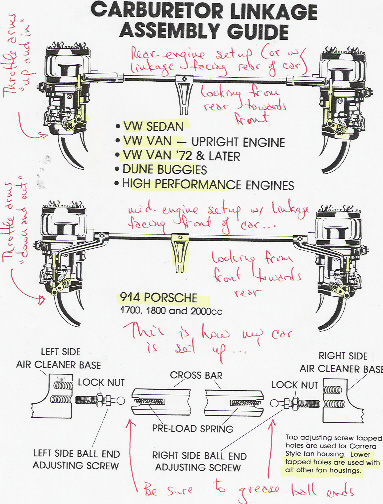 CARBURETOR LINKAGE
ASSEMBLY GUIDE
Throttle arms
"up and in"
Rear-engine setup (or w/
linkage facing rear of car)
looking from
rear towards
front
• VW SEDAN
• VW VAN — UPRIGHT ENGINE
• VW VAN '72 & LATER
• DUNE BUGGIES
• HIGH PERFORMANCE ENGINES
Throttle arms
"down and out"
mid-engine setup w/ linkage
facing front of car...
looking from
front towards
rear
914 PORSCHE
1700, 1800 and 2000cc
This is how my car
is set up...
LEFT SIDE
AIR CLEANER BASE
LOCK NUT
CROSS BAR
LOCK NUT
RIGHT SIDE
AIR CLEANER BASE
PRE-LOAD SPRING
LEFT SIDE BALL END
ADJUSTING SCREW
RIGHT SIDE BALL END
ADJUSTING SCREW
Top adjusting screw tapped
holes are used for Carrera
Style fan housing. Lower
tapped holes are used with
all other fan housings.
Be sure to grease ball ends